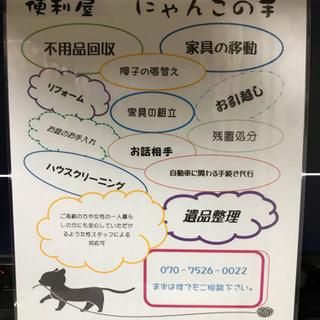 便利屋 にゃんこの手
不用品回収
家具の移動
障子の張替え
リフォーム
家具の組立
お引越し
お庭のお手入れ
残置処分
お話相手
ハウスクリーニング
自動車に関わる手続き代行
ご高齢の方や女性の一人暮ら
しの方にも安心していただけ
るよう女性スタッフによる
対応可
遺品整理
070-7526-0022
まずは何でもご相談下さい。